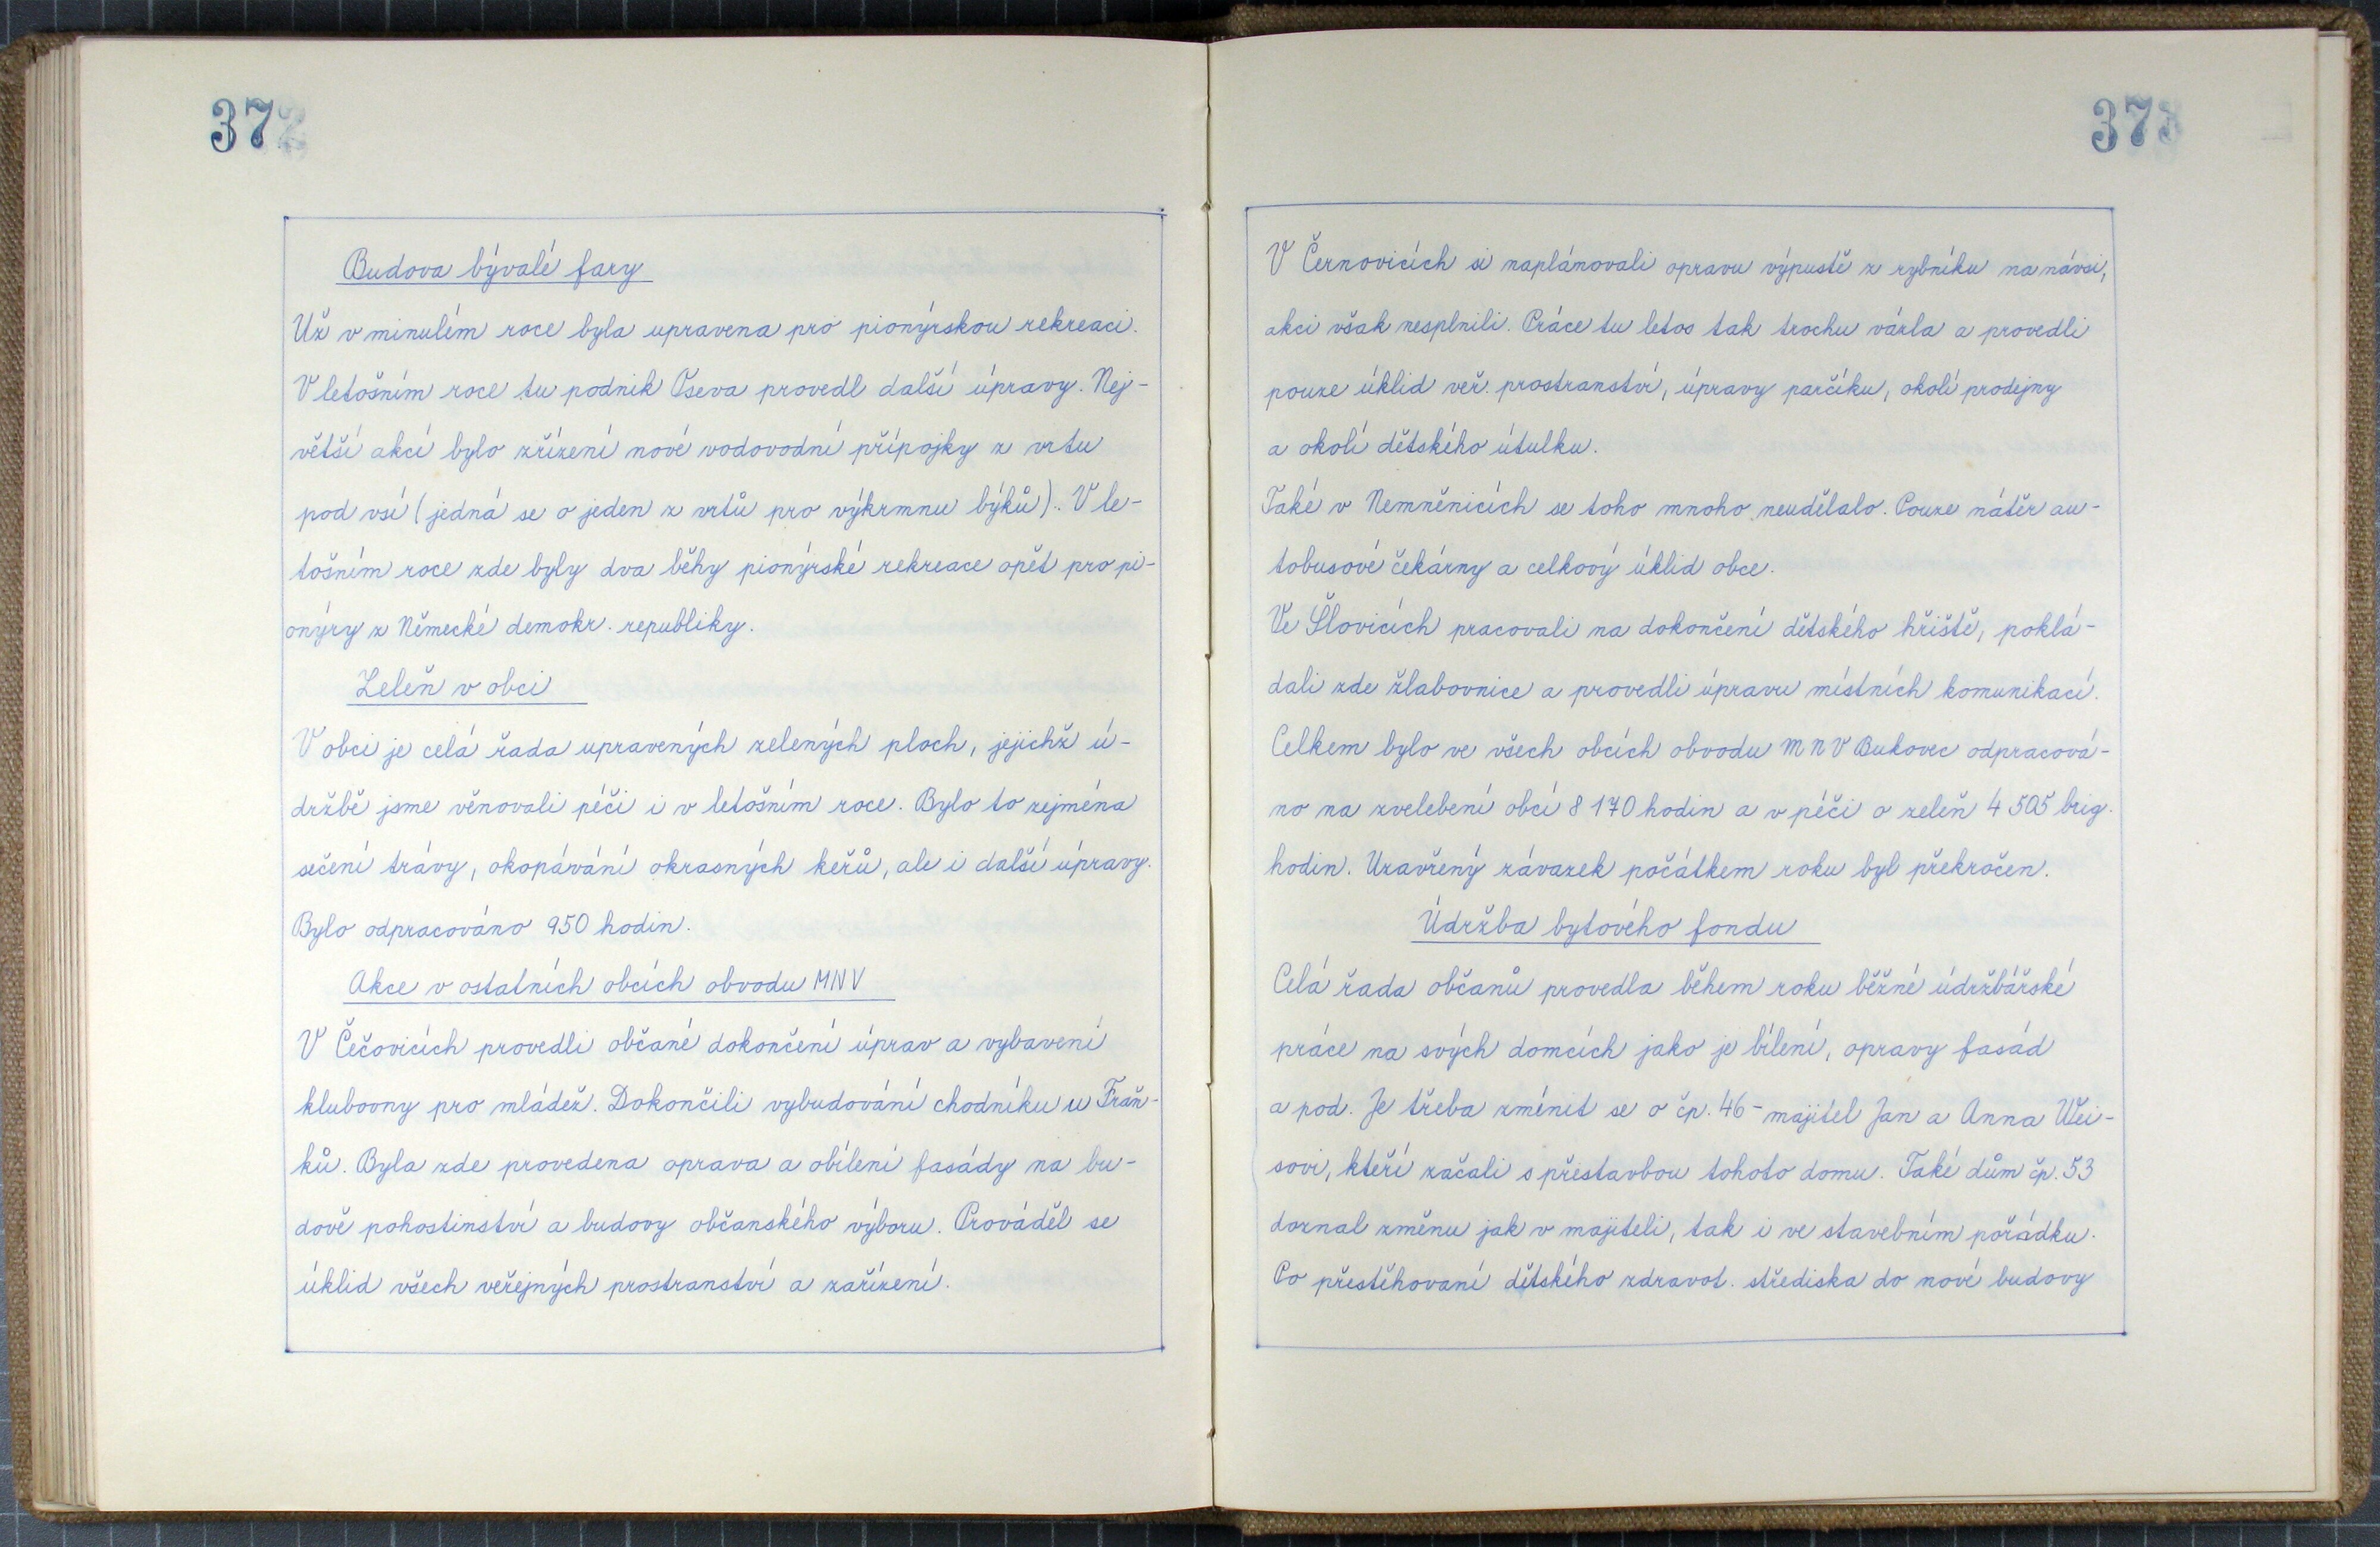 372
Budova bývalé fary
Už v minulém roce byla upravena pro pionýrskou rekreaci.
V letošním roce tu podnik Oseva provedl další úpravy. Nej-
větší akcí bylo zřízení nové vodovodní přípojky z vrtu
pod vsí (jedná se o jeden z vrtů pro výkrmnu býků). V le-
tošním roce zde byly dva běhy pionýrské rekreace opět pro pi-
onýry z Německé demokr. republiky.
Zeleň v obci
V obci je celá řada upravených zelených ploch, jejichž ú-
držbě jsme věnovali péči i v letošním roce. Bylo to zejména
sečení trávy, okopávání okrasných keřů, ale i další úpravy.
Bylo odpracováno 950 hodin.
Akce v ostatních obcích obvodu MNV
V Čečovicích provedli občané dokončení úprav a vybavení
klubovny pro mládež. Dokončili vybudování chodníku u Fraň-
ků. Byla zde provedena oprava a obílení fasády na bu-
dově pohostinství a budovy občanského výboru. Prováděl se
úklid všech veřejných prostranství a zařízení.
373
V Černovicích si naplánovali opravu výpustě z rybníku na návsi,
akci však nesplnili. Práce tu letos tak trochu vázla a provedli
pouze úklid veř. prostranství, úpravy parčíku, okolí prodejny
a okolí dětského útulku.
Také v Nemněnicích se toho mnoho neudělalo. Pouze nátěr au-
tobusové čekárny a celkový úklid obce.
Ve Šlovicích pracovali na dokončení dětského hřiště, poklá-
dali zde žlabovnice a provedli úpravu místních komunikací.
Celkem bylo ve všech obcích obvodu MNV Bukovec odpracová-
no na zvelebení obcí 8 170 hodin a v péči o zeleň 4 505 brig.
hodin. Uzavřený závazek počátkem roku byl překročen.
Údržba bytového fondu
Celá řada občanů provedla během roku běžné údržbářské
práce na svých domcích jako je bílení, opravy fasád
a pod. Je třeba zmínit se o čp. 46 - majitel Jan a Anna Wei-
sovi, kteří začali s přestavbou tohoto domu. Také dům čp. 53
doznal změnu jak v majiteli, tak i ve stavebním pořádku.
Po přestěhovaní dětského zdravot. střediska do nové budovy